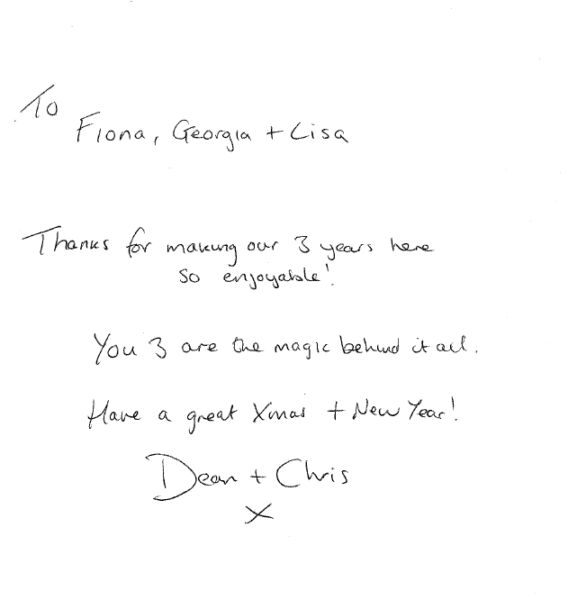 To
Fiona, Georgia + Lisa
Thanks for making our 3 years here
so enjoyable!
You 3 are the magic behind it all.
Have a great Xmas + New Year!
Dean + Chris
X